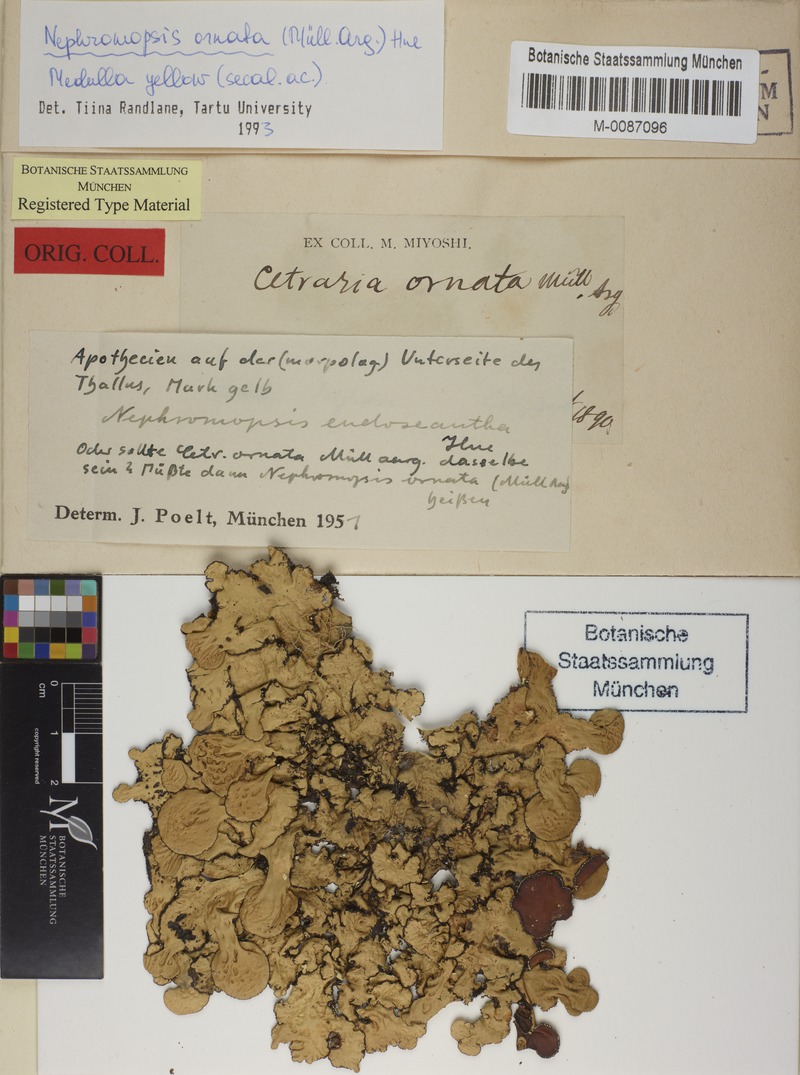 Nephromopsis ornata (Müll. Arg.) Hue
Medulla yellow (secal. ac.)
Det. Tiina Randlane, Tartu University
1993
Botanische Staatssammlung München
M-0087096
BOTANISCHE STAATSSAMMLUNG
MÜNCHEN
Registered Type Material
ORIG. COLL.
EX COLL. M. MIYOSHI.
Cetraria ornata Müll. Arg
Apothecien auf der (morpolog) Unterseite des
Thallus, Mark gelb
Nephromopsis endoxantha
Hue
Oder sollte Cetr. ornata Müll aurg. dasselbe
sein? Müßte dann Nephromopsis ornata (Müll Arg)
heißen
Determ. J. Poelt, München 1957
Botanische
Staatssammlung
München
0
cm
1
2
copyright reserved
BOTANISCHE
STAATSSAMMLUNG
MÜNCHEN